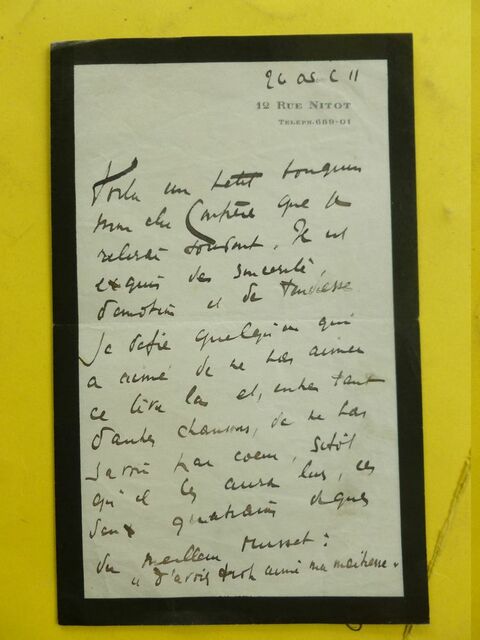 26 Oct 11
12 Rue Nitot
Teleph. 689-01
Voilà un petit bouquin
mon cher Confrère que je
relirai souvent. Il est
exquis de sincerité,
d'emotion et de tendresse
Je défie quelqu'un qui
a aimé de ne pas aimer
ce livre là et, entre tant
d'autres chansons, de ne pas
savoir par coeur, sitôt
qu'il les aura lus, ces
deux quatrains dignes
du meilleur Musset :
"D'avoir trop aimé ma maitresse"